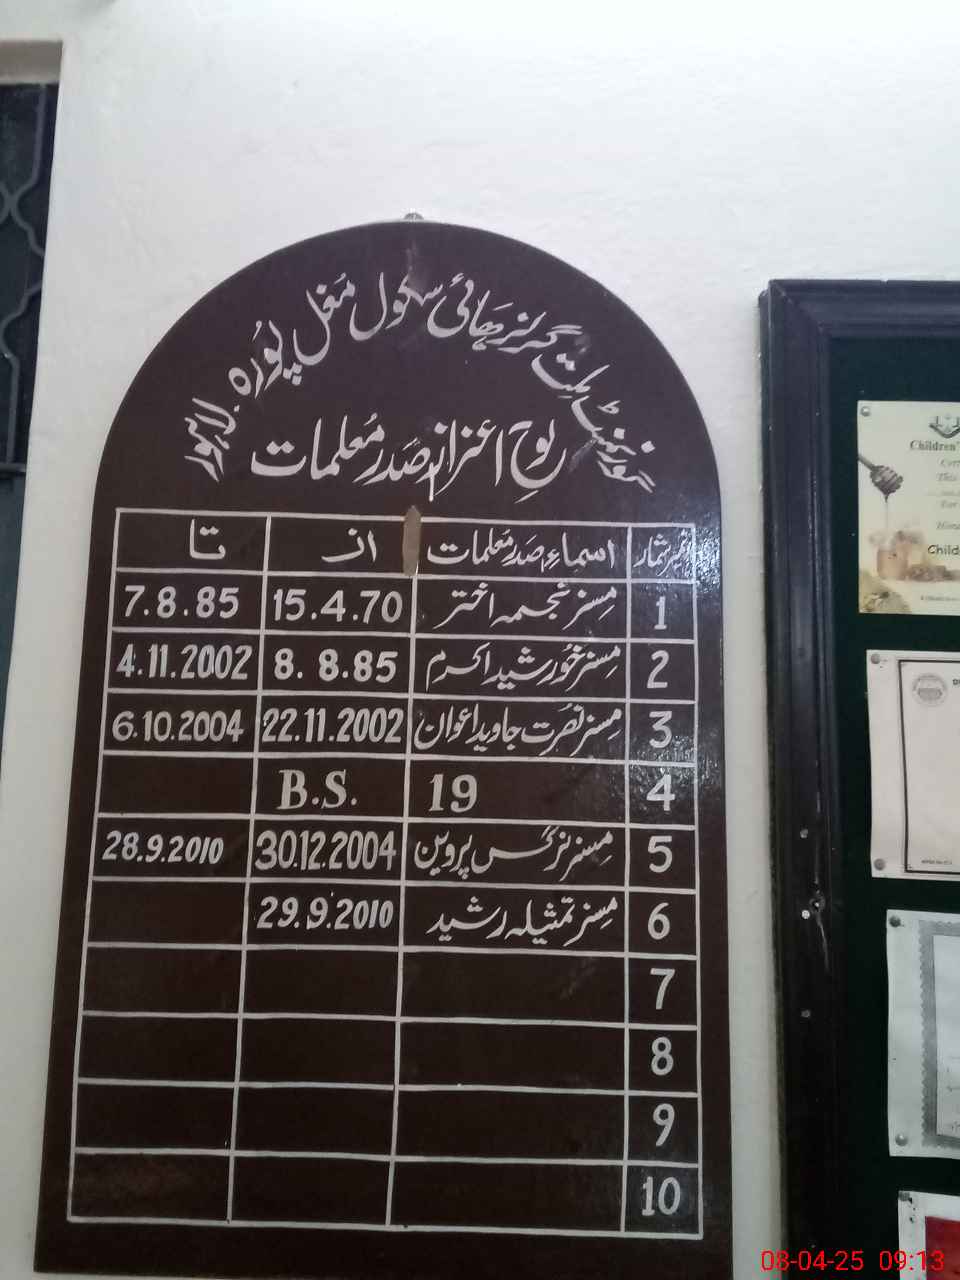 گورنمنٹ ملت گرلز ہائی سکول مغل پورہ ۔ لاہور
لوحِ اعزاز صدر معلمات
نمبر شمار اسماء صدر معلمات از تا
1 مسز نجمہ اختر 15.4.70 7.8.85
2 مسز خورشید اکرم 8.8.85 4.11.2002
3 مسز نصرت جاوید اعوان 22.11.2002 6.10.2004
4 19 B.S.
5 مسز نرگس پروین 30.12.2004 28.9.2010
6 مسز تمثیلہ رشید 29.9.2010
7
8
9
10
Children'
This
Child
08-04-25 09:13